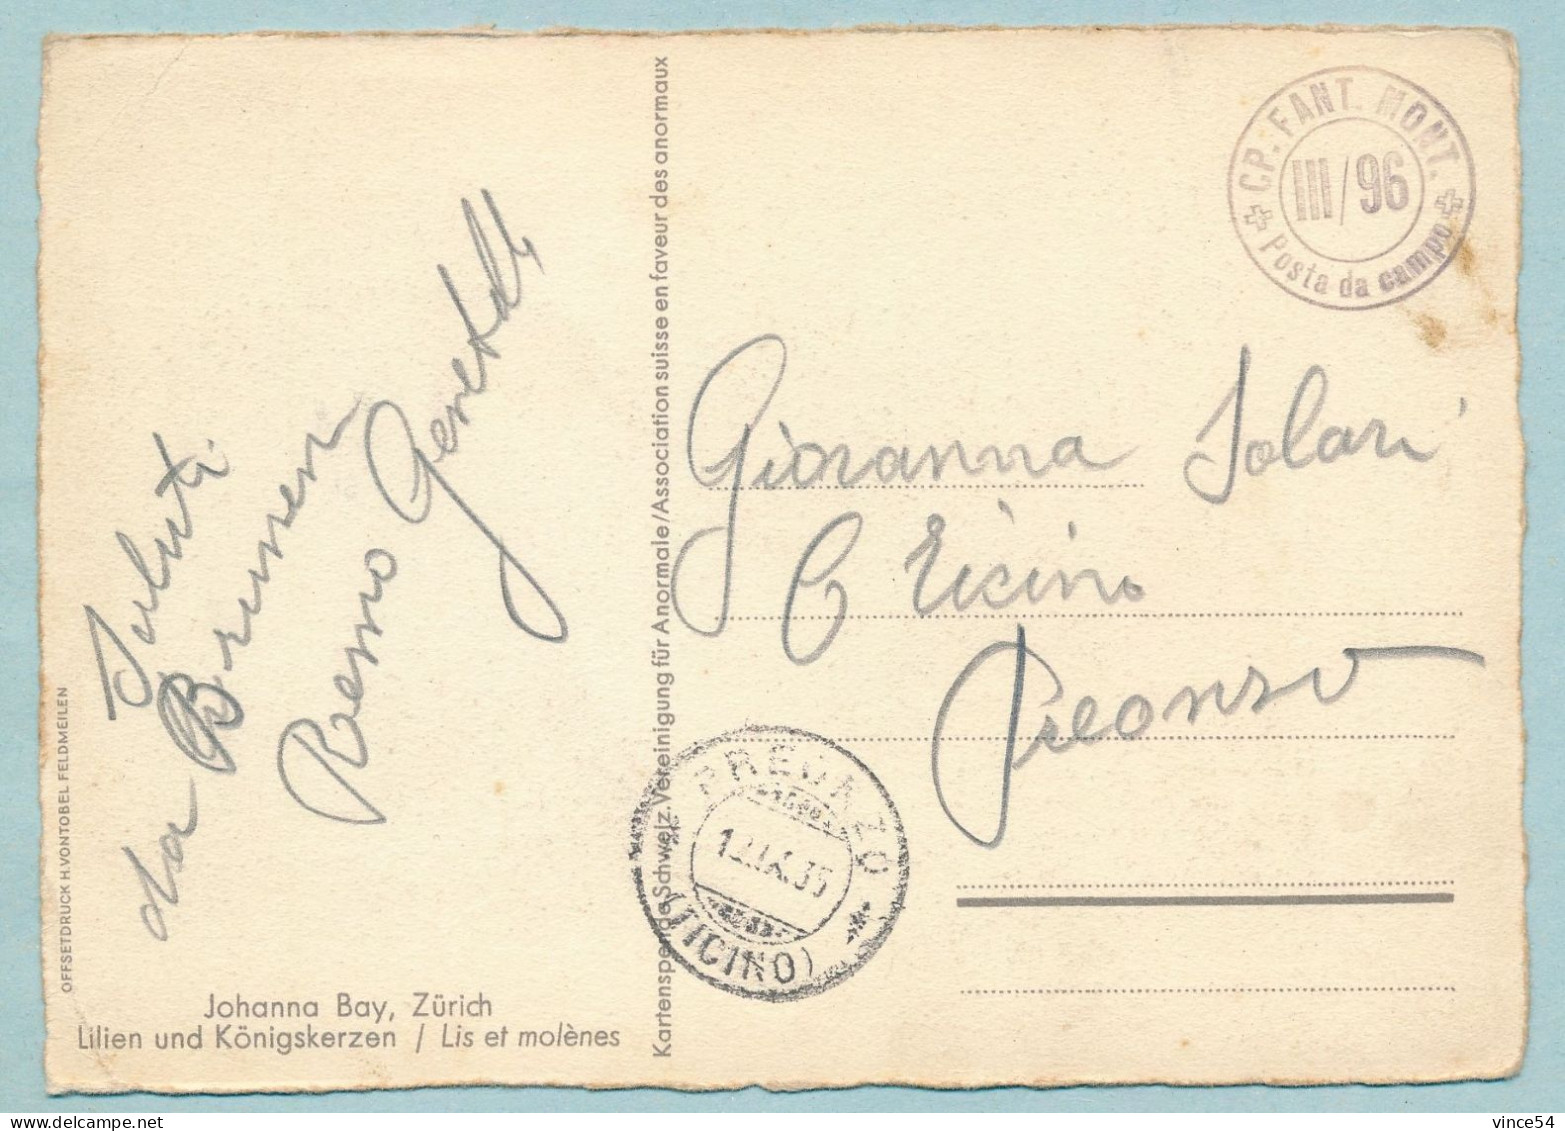 Saluti
da Brunnen
Remo
OFFSETDRUCK H. VONTOBEL FELDMEILEN
Johanna Bay, Zürich
Lilien und Königskerzen / Lis et molènes
Kartenspende Schweiz. Vereinigung für Anormale/Association suisse en faveur des anormaux
CP. FANT. MONT.
III/96
Posta da campo
Giovanna Solari
Preonzo
(TICINO)
vince54